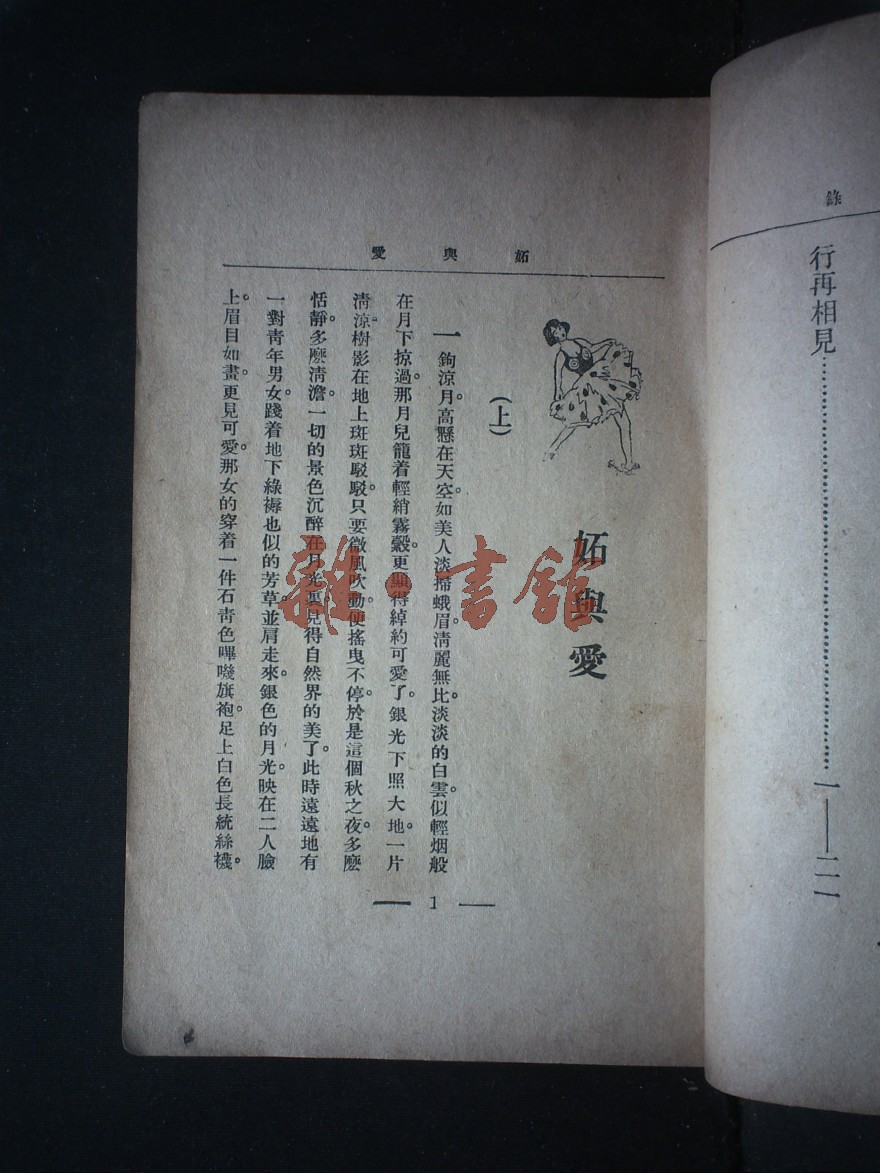 錄
行再相見……………………………………一——二一
妬與愛
妬與愛
(上)
一鉤涼月。高懸在天空。如美人淡掃蛾眉。淸麗無比。淡淡的白雲。似輕烟般
在月下掠過。那月兒籠着輕綃霧縠。更顯得綽約可愛了。銀光下照大地。一片
淸涼。樹影在地上斑斑駁駁。只要微風吹動。便搖曳不停。於是這個秋之夜。多麽
恬靜。多麽淸澹。一切的景色沉醉在月光裏。見得自然界的美了。此時遠遠地有
一對靑年男女。踐着地下綠褥也似的芳草。並肩走來。銀色的月光。映在二人臉
上。眉目如畫。更見可愛。那女的穿着一件石靑色嗶嘰旗袍。足上白色長統絲襪。
— 1 —
雜·書館